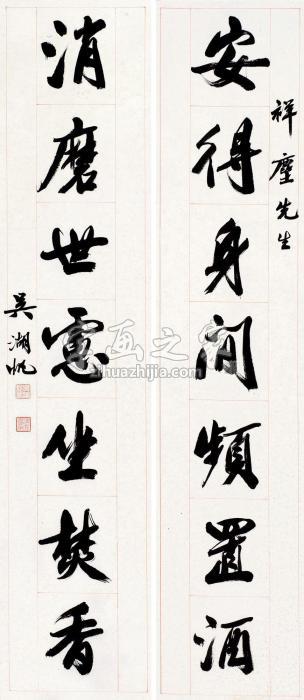 安得身閒頻置酒
祥塵先生
消磨世慮坐焚香
吳湖帆
字画之家
zihuazhijia.com